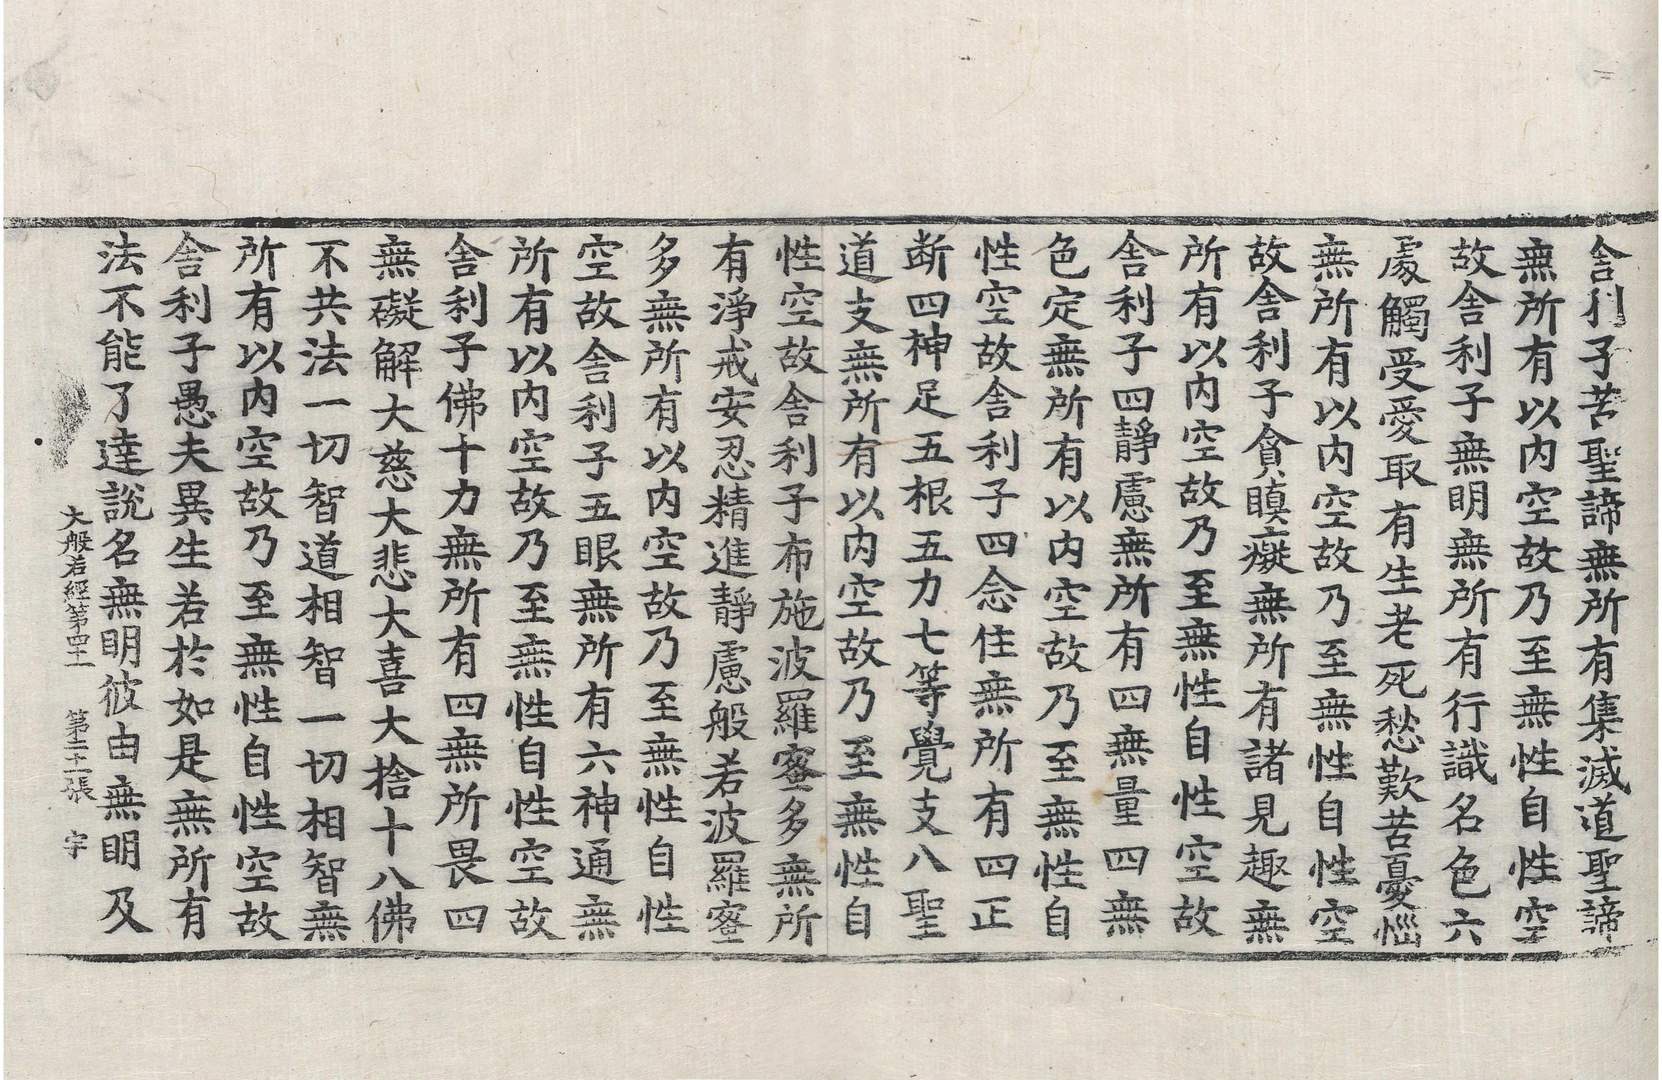 舎利子苦聖諦無所有集滅道聖諦
無所有以内空故乃至無性自性空
故舎利子無明無所有行識名色六
處觸受愛取有生老死愁歎苦憂惱
無所有以内空故乃至無性自性空
故舎利子貪瞋癡無所有諸見趣無
所有以内空故乃至無性自性空故
舎利子四靜慮無所有四無量四無
色定無所有以内空故乃至無性自
性空故舎利子四念住無所有四正
断四神足五根五力七等覺支八聖
道支無所有以内空故乃至無性自
性空故舎利子布施波羅蜜多無所
有淨戒安忍精進靜慮般若波羅蜜
多無所有以内空故乃至無性自性
空故舎利子五眼無所有六神通無
所有以内空故乃至無性自性空故
舎利子佛十力無所有四無所畏四
無礙解大慈大悲大喜大捨十八佛
不共法一切智道相智一切相智無
所有以内空故乃至無性自性空故
舎利子愚夫異生若於如是無所有
法不能了達說名無明彼由無明及
大般若經第四十一 第二十二張 宇